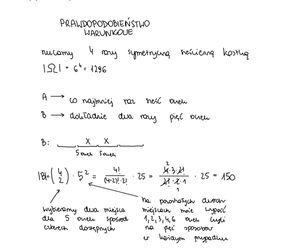 PRAWDOPODOBIEŃSTWO
WARUNKOWE
rzucamy 4 razy symetryczną sześcienną kostką
|Ω| = 6⁴ = 1296
A → co najmniej raz sześć oczek
B → dokładnie dwa razy pięć oczek
B: X X
5 oczek 5 oczek
|B| = (4 2) · 5² = 4! / (4-2)! · 2! · 25 = 4 · 3 · 2! / 2! · 2 · 1 · 25 = 150
wybieramy dwa miejsca dla 5 oczek spośród czterech dostępnych
Na pozostałych dwóch miejscach może wypaść 1, 2, 3, 4, 6 oczek czyli na pięć sposobów w każdym przypadku